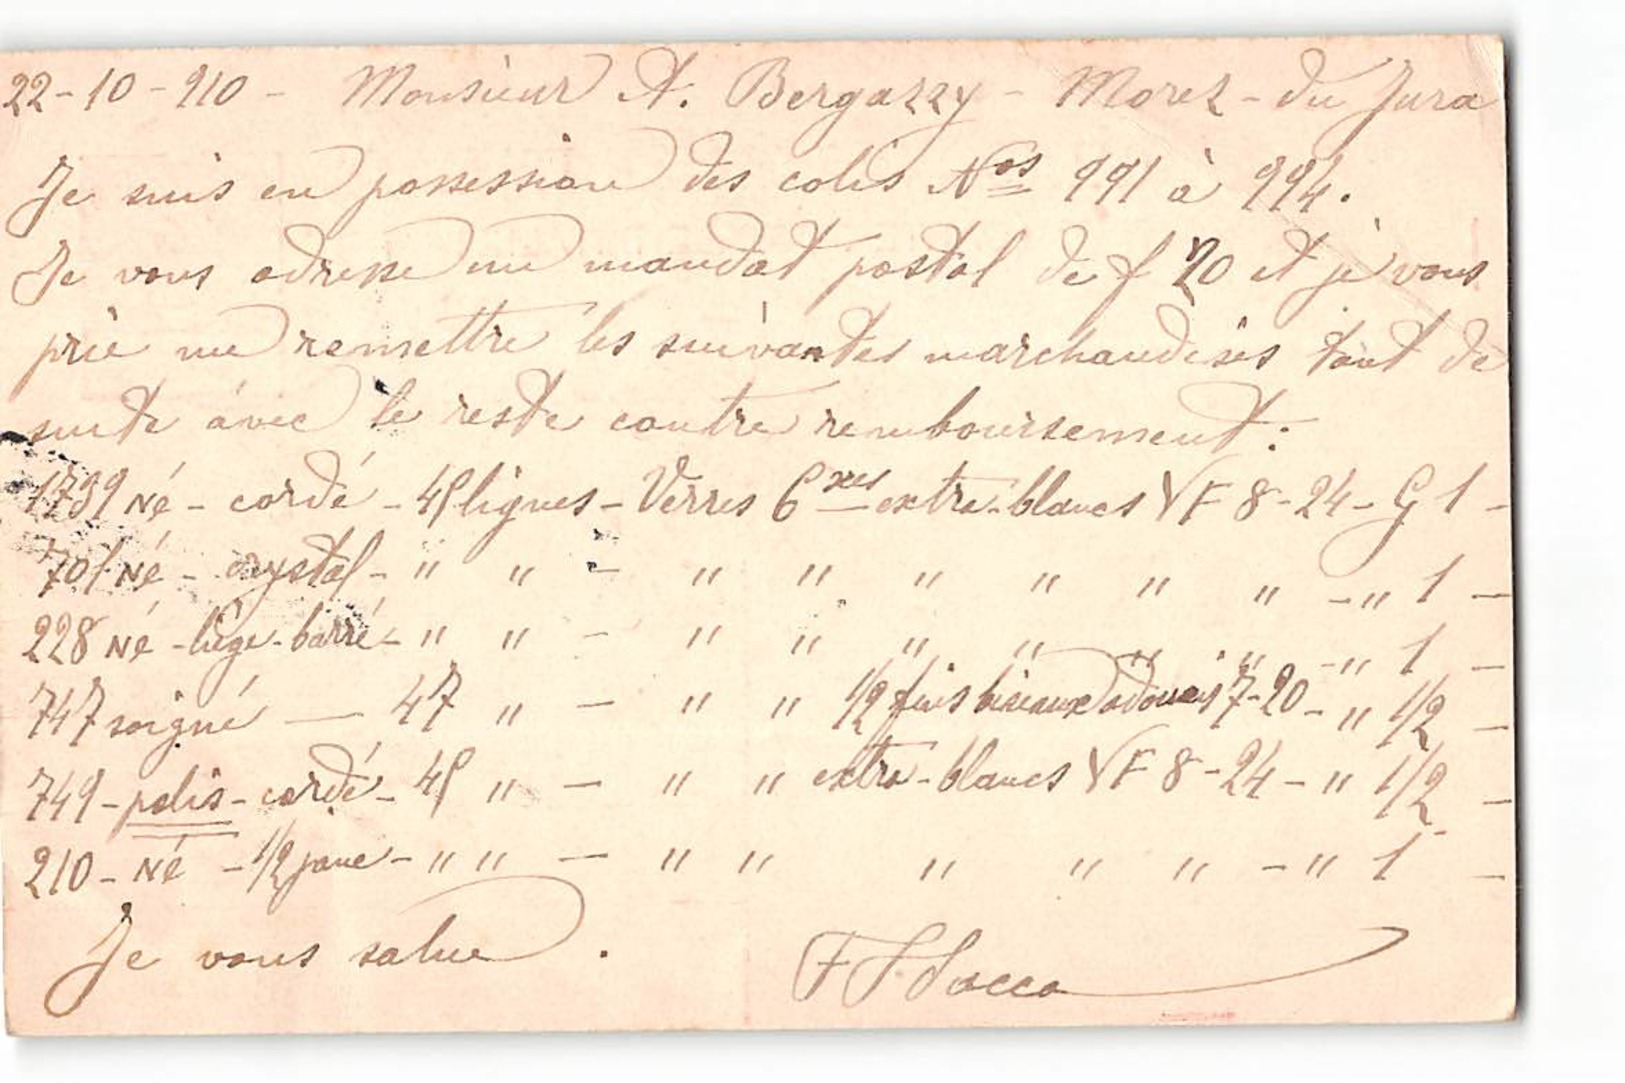 22-10-910 - Monsieur A. Bergazzy - Morez - du Jura
Je suis en possession des colis Nos 991 à 994.
Je vous adresse un mandat postal de f 20 et je vous
prie me remettre les suivantes marchandises tout de
suite avec le reste contre remboursement :
1739 Né - cordé - 45 lignes - Verres 6 extra-blancs VF 8-24 - G 1 -
701 Né - crystal - " " - " " " " " " - " 1 -
228 Né - liège - barré - " " - " " " " " " - " 1 -
747 soigné — 47 " - " " 1/2 fins biseaux adoucis 7-20 - " 1/2 -
749 - polis - cordé - 45 " - " " extra-blancs VF 8-24 - " 1/2 -
210 - Né - 1/2 jaune - " " - " " " " " - " 1 -
Je vous salue .